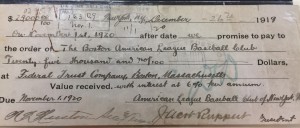 $25000.00 New York, N.Y. December 26th 1919
On November 1st, 1920 after date we promise to pay
the order of The Boston American League Baseball Club
Twenty five thousand and no/100 Dollars,
at Federal Trust Company, Boston, Massachusetts
Value received, with interest at 6% per annum
Due November 1, 1920 American League Baseball Club of New York
Jacob Ruppert